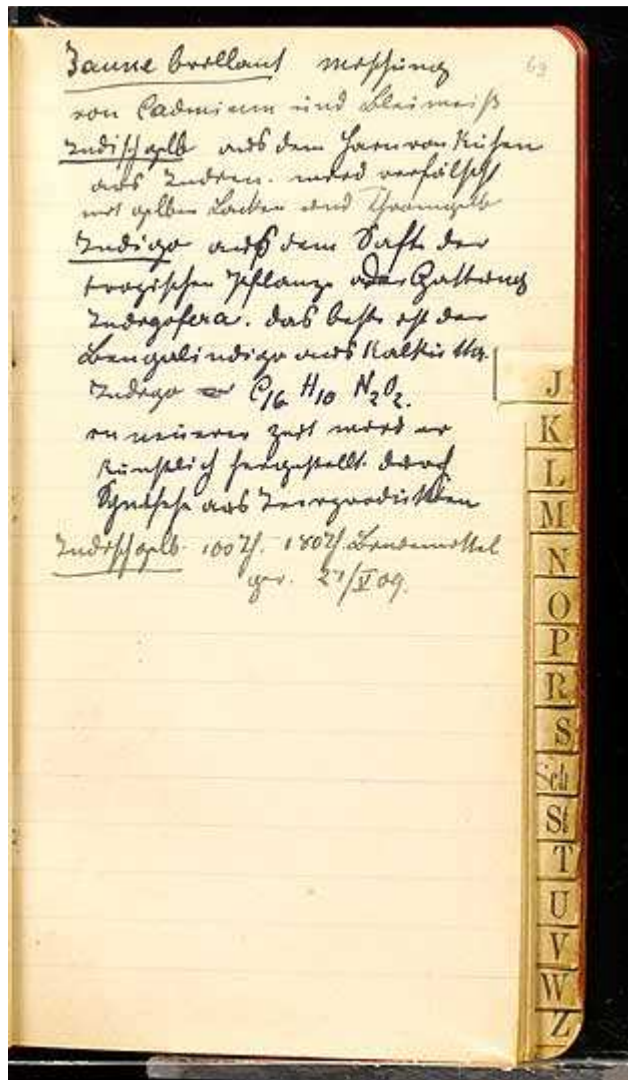 69
Jaune brillant Mischung
von Cadmium und Bleiweiß
Indischgelb aus dem Harn von Kühen
aus Indien. wird verfälscht
mit gelben Lacken und Chromgelb
Indigo aus dem Saft der
tropischen Pflanze oder Gattung
Indigofera. das beste ist der
Bengalindigo aus Kalkutta.
Indigo = C16 H10 N2O2.
in neuerer Zeit wird er
künstlich hergestellt durch
Synthese aus Teerprodukten
Indischgelb. 100 Tl. 180 Tl. Bindemittel
ger. 27/V 09.
J
K
L
M
N
O
P
R
S
Sch
St
T
U
V
W
Z